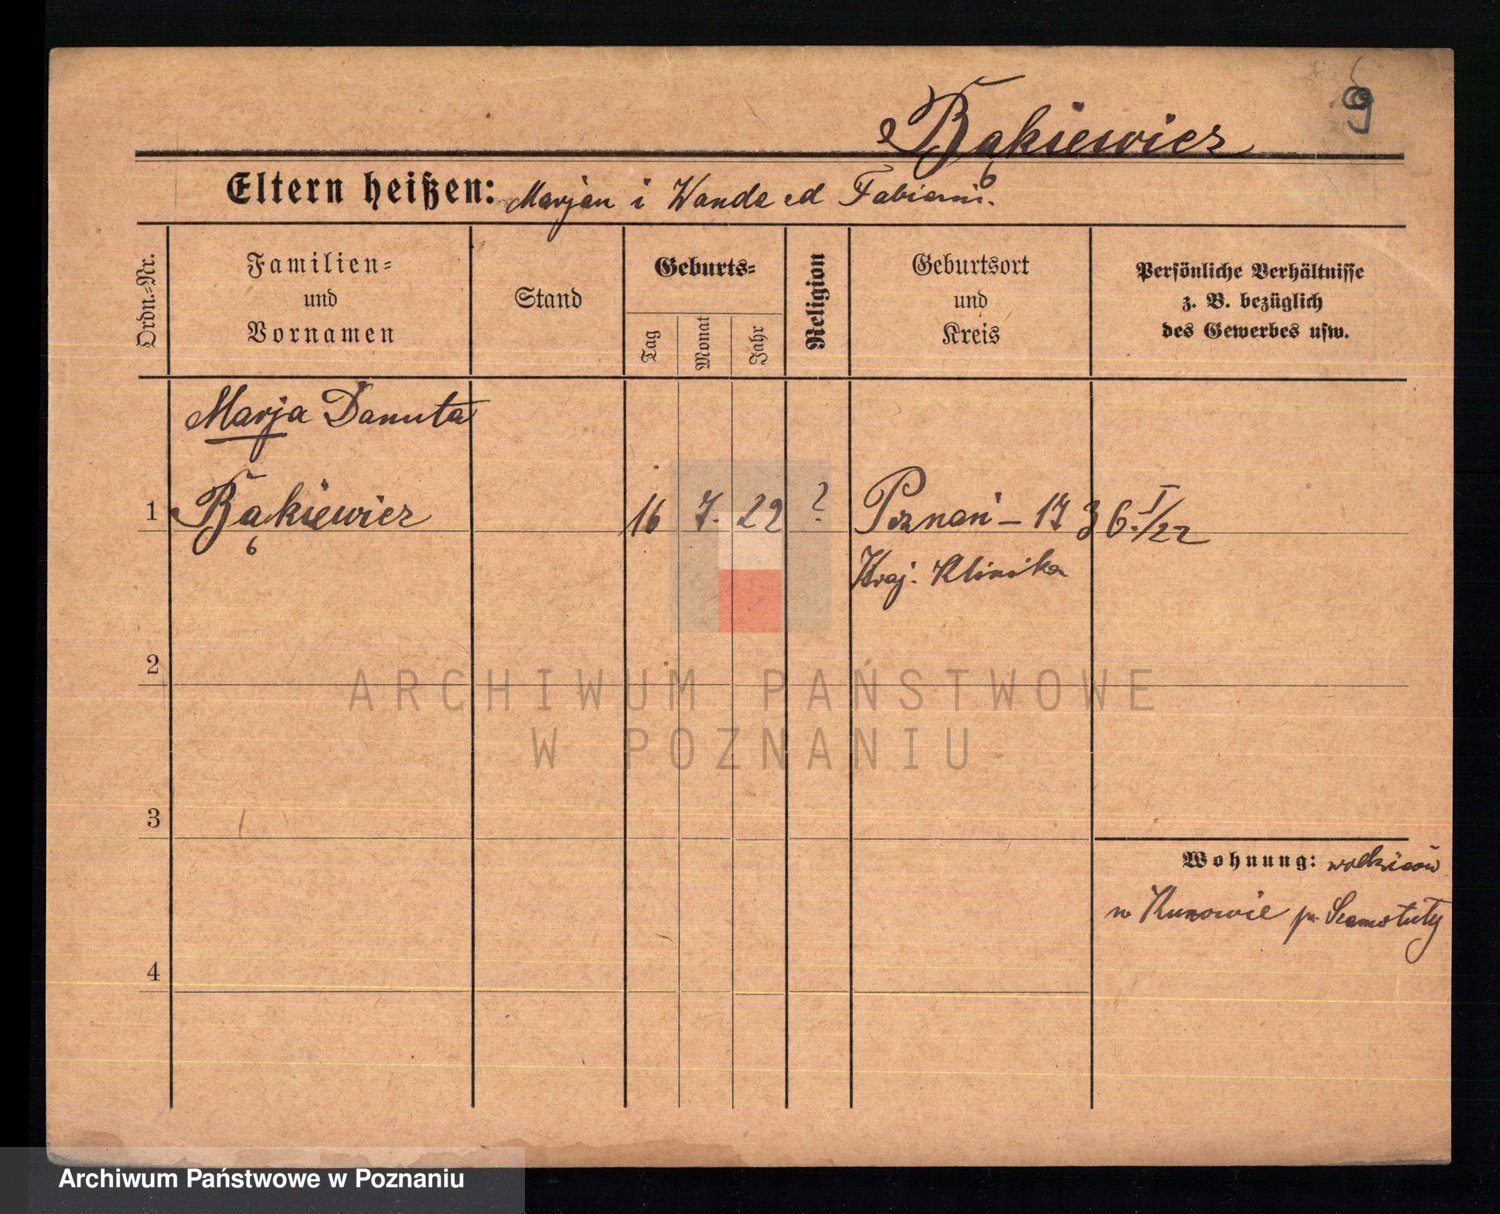 Bąkiewicz
9
Eltern heißen: Marjan i Wanda zd Fabiani.
Ordn.=Nr.
Familien=
und
Vornamen
Stand
Geburts=
Tag
Monat
Jahr
Religion
Geburtsort
und
Kreis
Persönliche Verhältnisse
z. B. bezüglich
des Gewerbes usw.
Marja Danuta
1 Bąkiewicz 16 7. 22 ? Poznań – 1736. I/22
Kraj. Klinika
2
3
4
Wohnung:
w Kunowie Szamotuły
ARCHIWUM PAŃSTWOWE
W POZNANIU
Archiwum Państwowe w Poznaniu